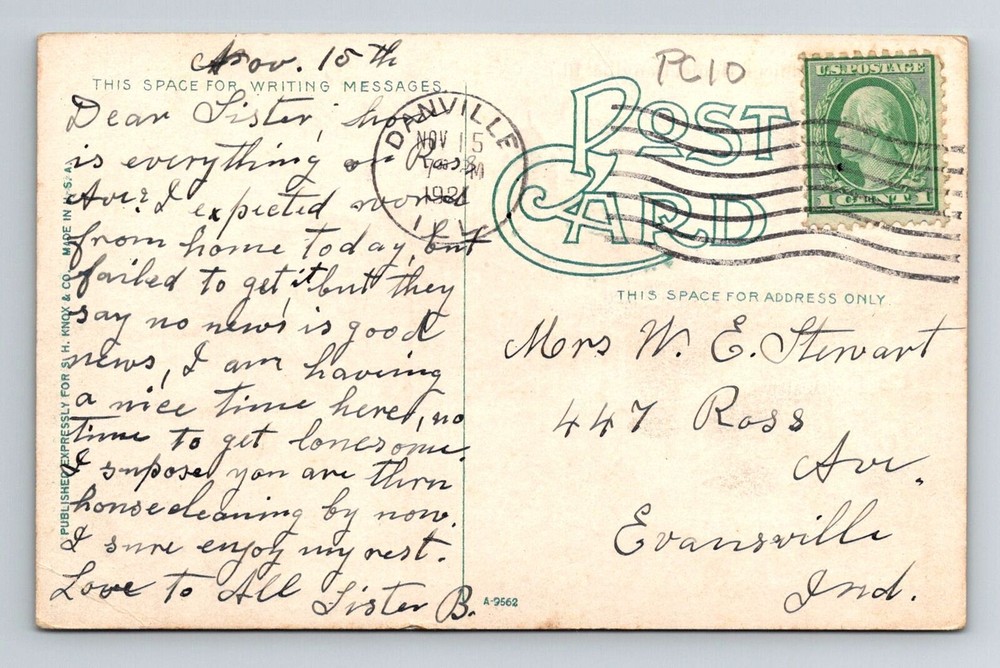 Nov. 15th
THIS SPACE FOR WRITING MESSAGES.
Dear Sister, how
is everything on Ross
Ave? I expected word
from home today, but
failed to get it but they
say no news is good
news, I am having
a nice time here, no
time to get lonesome.
I supose you are thru
housecleaning by now.
I sure enjoy my rest.
Love to All
Sister B.
PUBLISHED EXPRESSLY FOR S. H. KNOX & CO. MADE IN U.S.A.
DANVILLE
NOV 15
ILL
PC10
POST
CARD
U.S. POSTAGE
1 CENT 1
THIS SPACE FOR ADDRESS ONLY.
Mrs W. E. Stewart
447 Ross
Ave.
Evansville
Ind.
A-9562